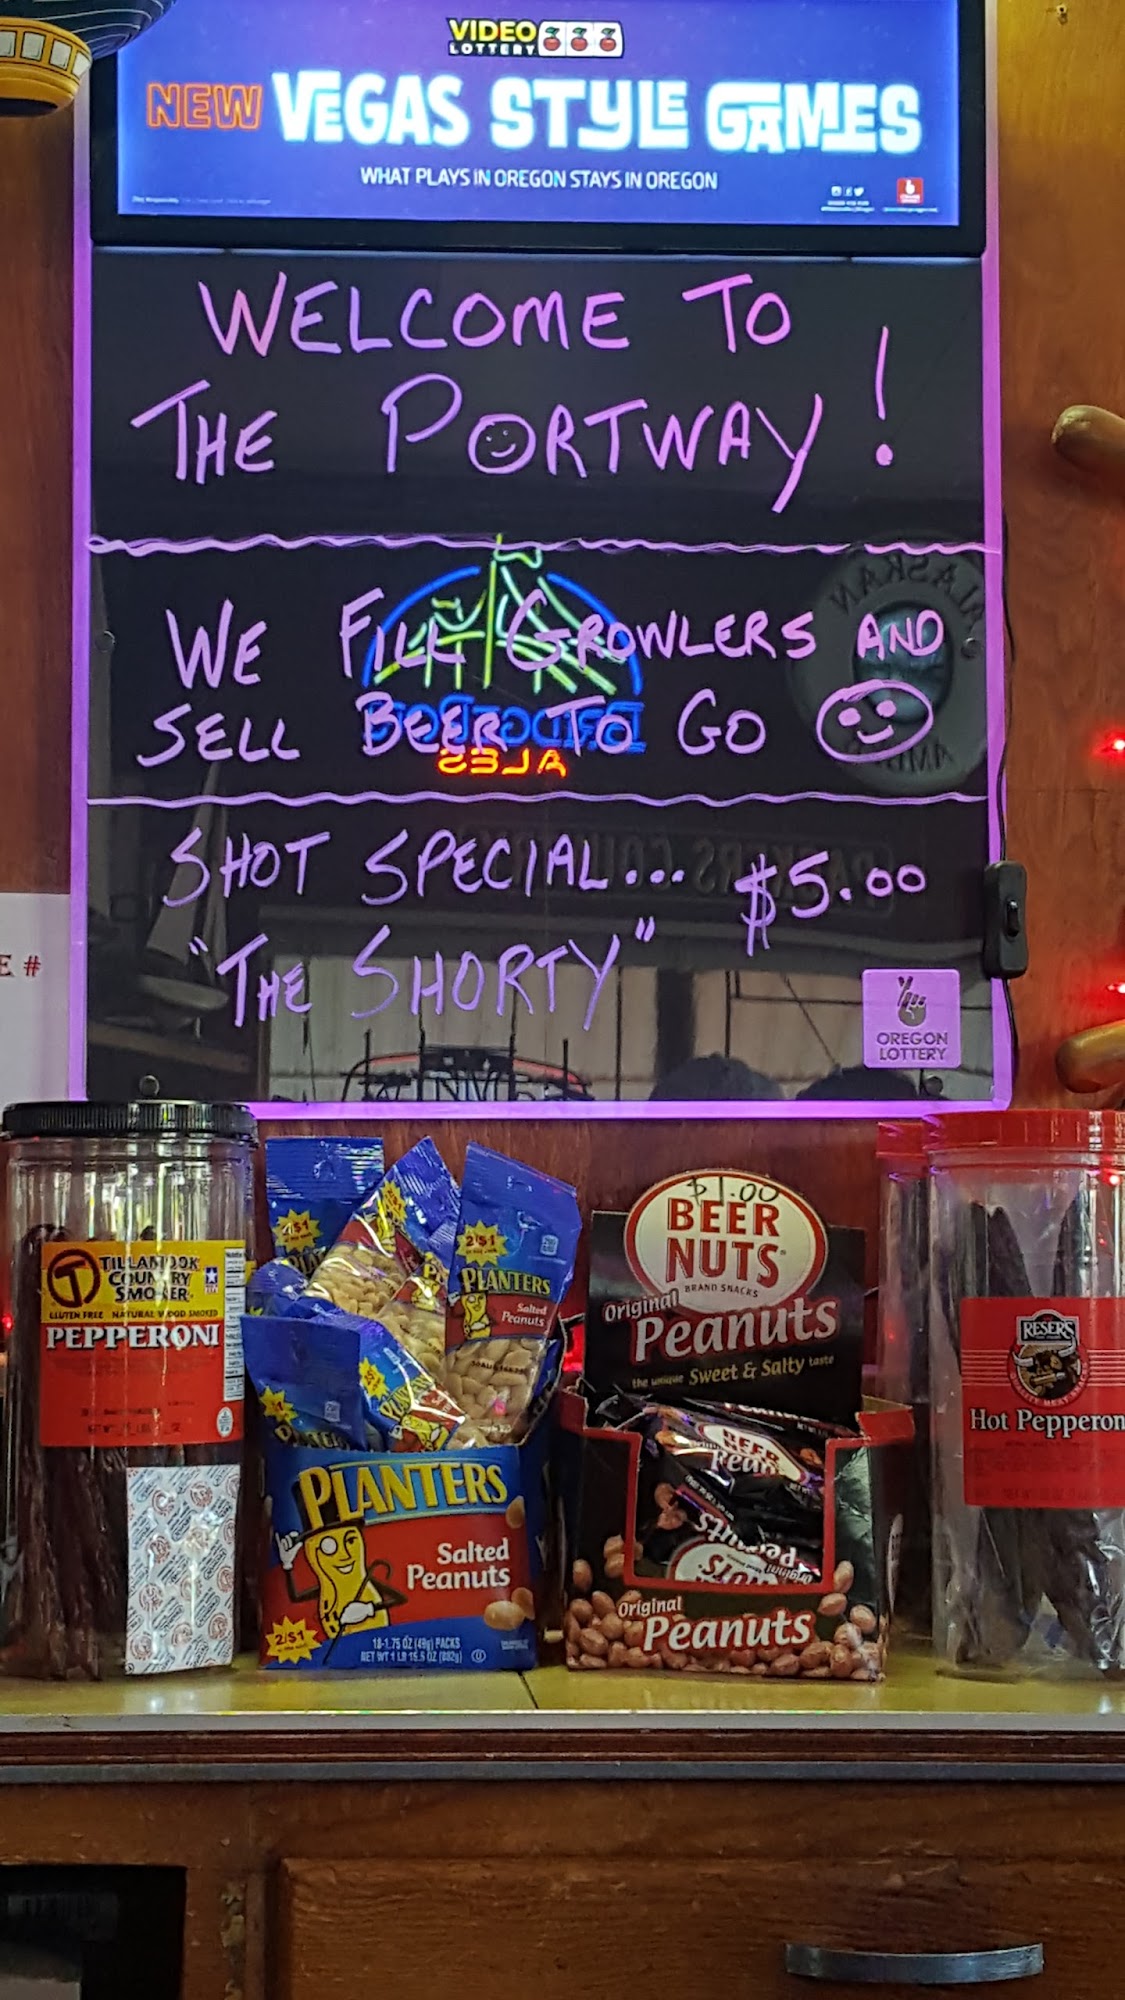 VIDEO
LOTTERY
NEW VEGAS STYLE GAMES
WHAT PLAYS IN OREGON STAYS IN OREGON
WELCOME TO
THE PORTWAY!
WE FILL GROWLERS AND
SELL BEER TO GO
BRIDGEPORT
ALES
ALASKAN
SHOT SPECIAL... $5.00
"THE SHORTY"
OREGON
LOTTERY
E #
TILLAMOOK
COUNTRY
SMOKER
GLUTEN FREE NATURAL WOOD SMOKED
PEPPERONI
2/$1
2/$1
PLANTERS
Salted
Peanuts
PLANTERS
Salted
Peanuts
2/$1
18-1.75 OZ (49g) PACKS
NET WT 1 LB 15.5 OZ (892g)
$1.00
BEER
NUTS
BRAND SNACKS
Original
Peanuts
the unique Sweet & Salty taste
BEER
NUTS
Original
Peanuts
RESER'S
Hot Pepperon